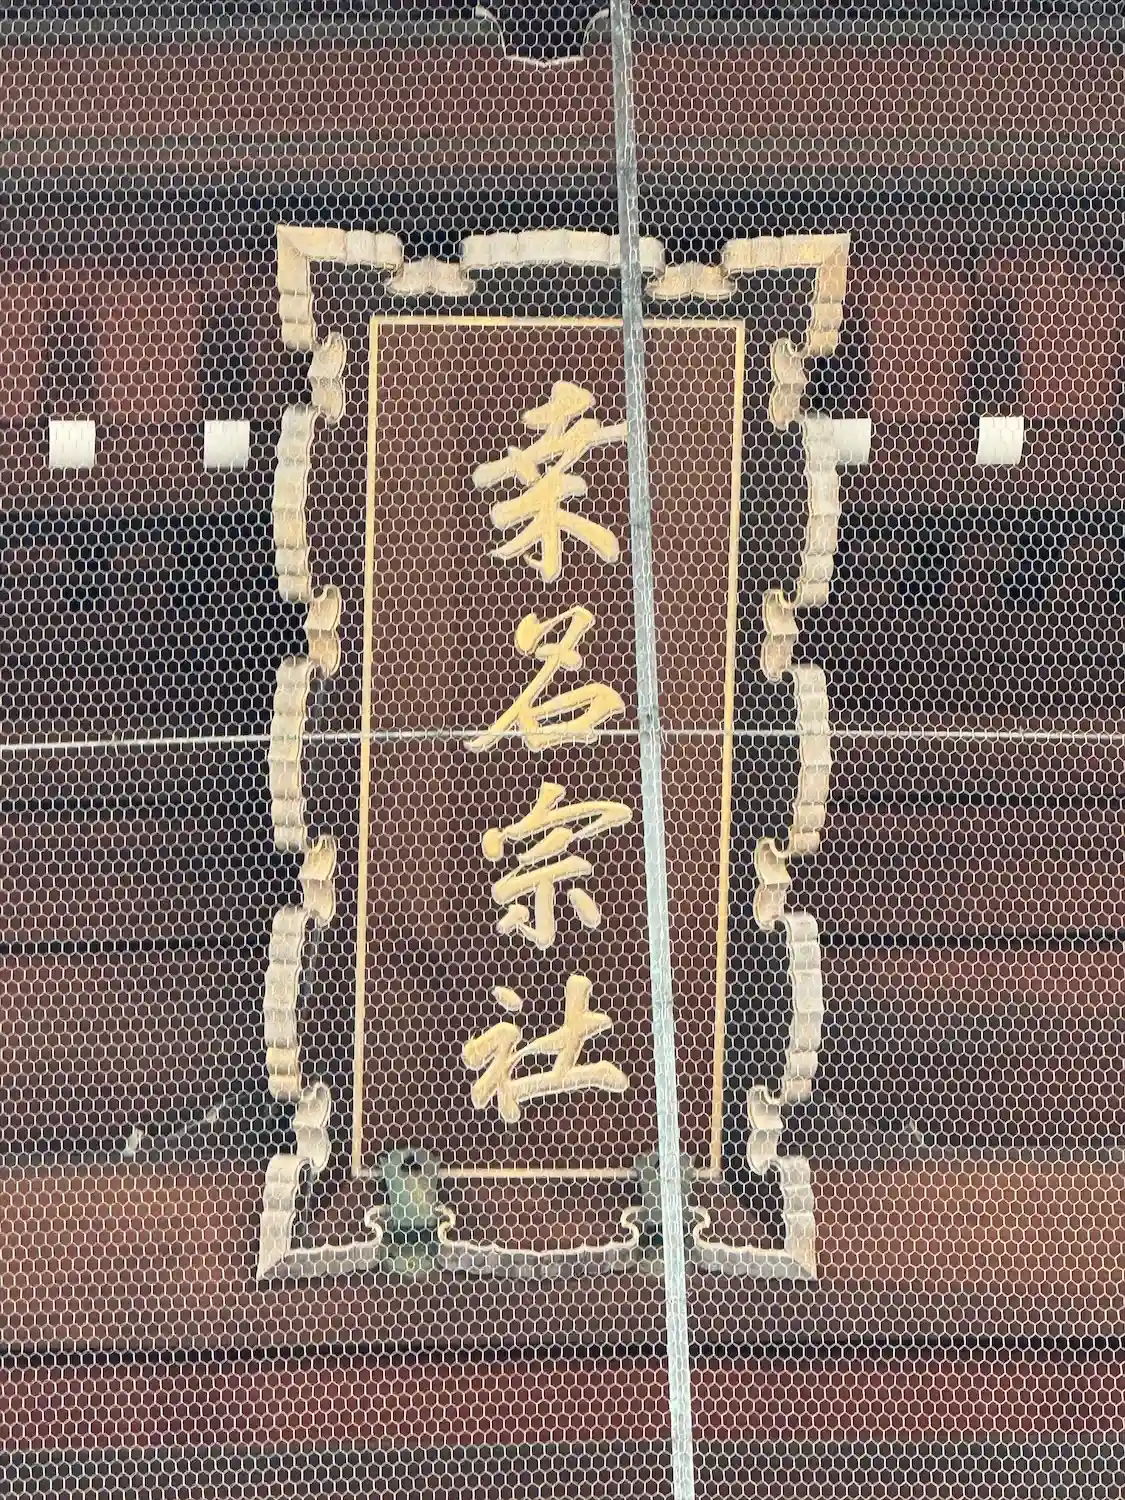 桑名宗社